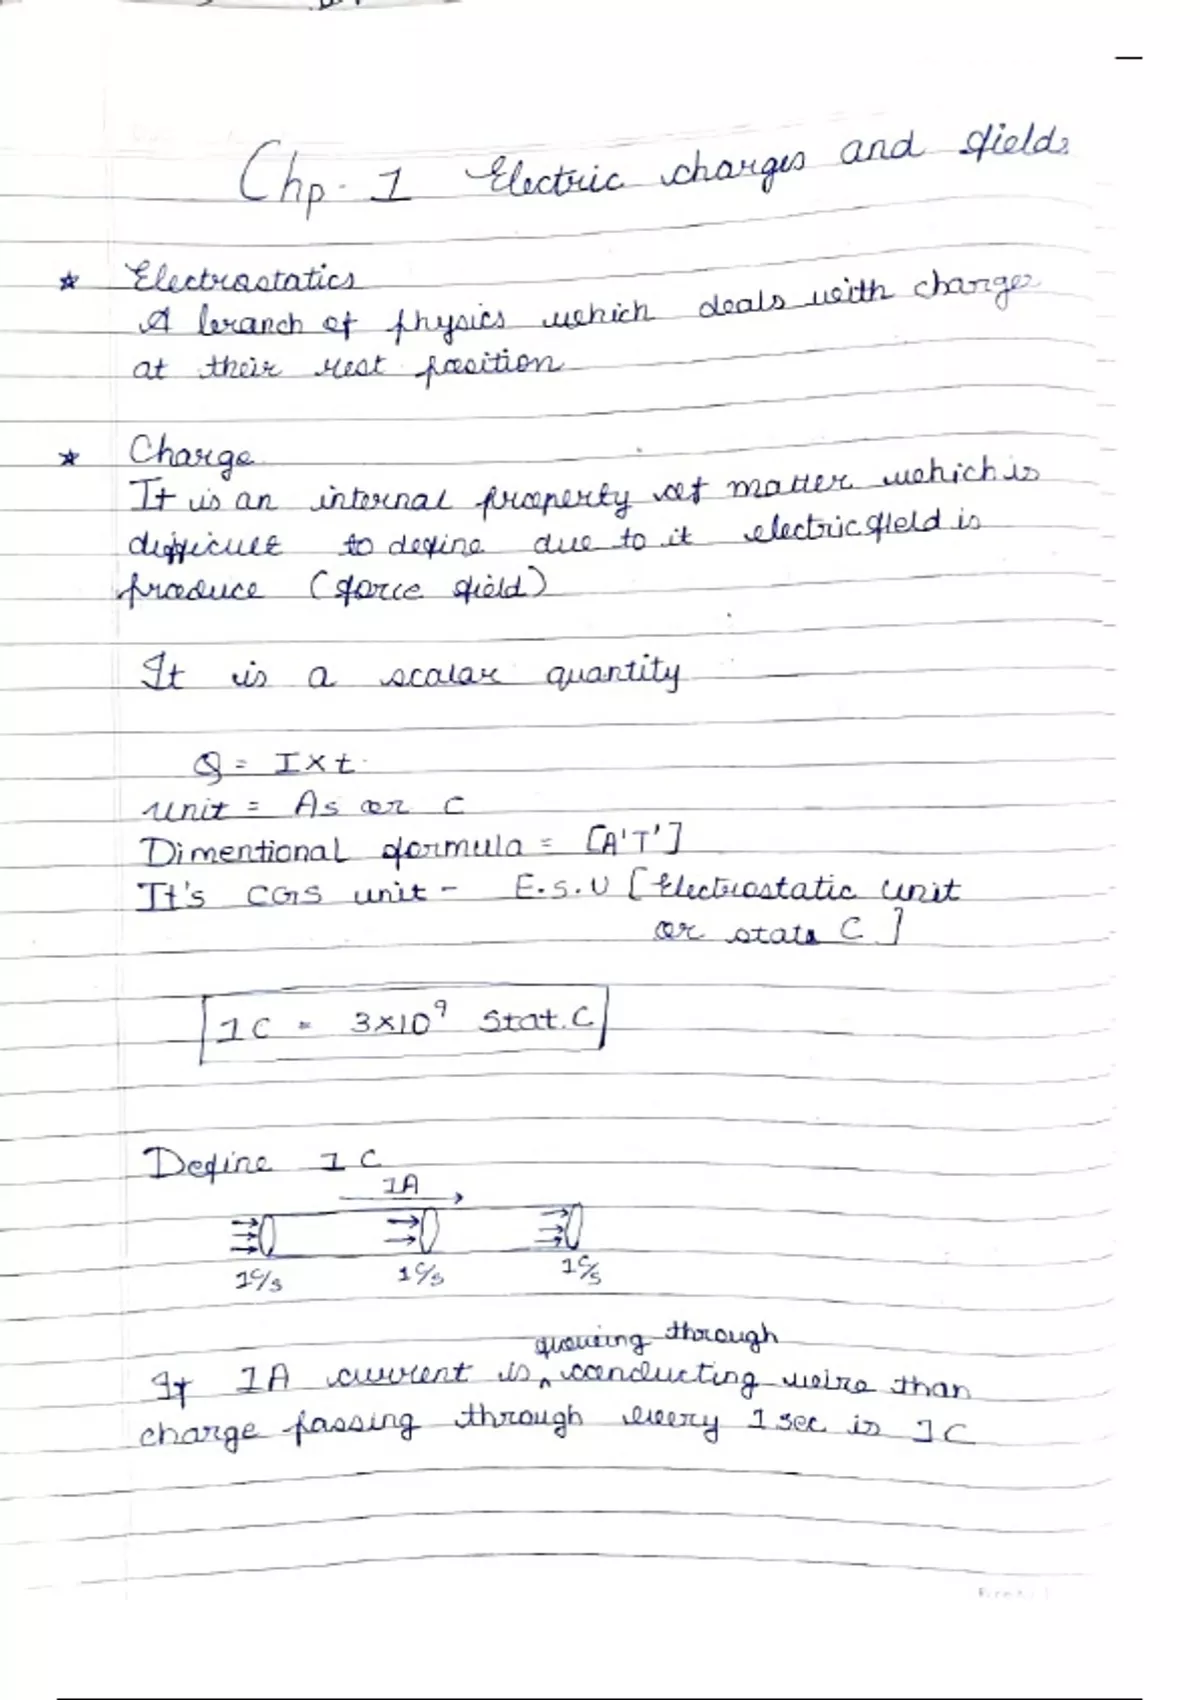 Chp. 1 Electric charges and fields
Electrostatics
A branch of physics which deals with charge
at their rest position
Charge
It is an internal property of matter which is
difficult to define due to it electric field is
produce (force field)
It is a scalar quantity
Q = I × t.
unit = As or C
Dimentional formula = [A¹T¹]
It's CGS unit - E.S.U [Electrostatic unit
or stat C]
1 C = 3×10⁹ Stat.C
Define 1 C
1A
1C/s 1C/s 1C/s
through
If 1A current is conducting wire than
charge passing through every 1 sec is 1C